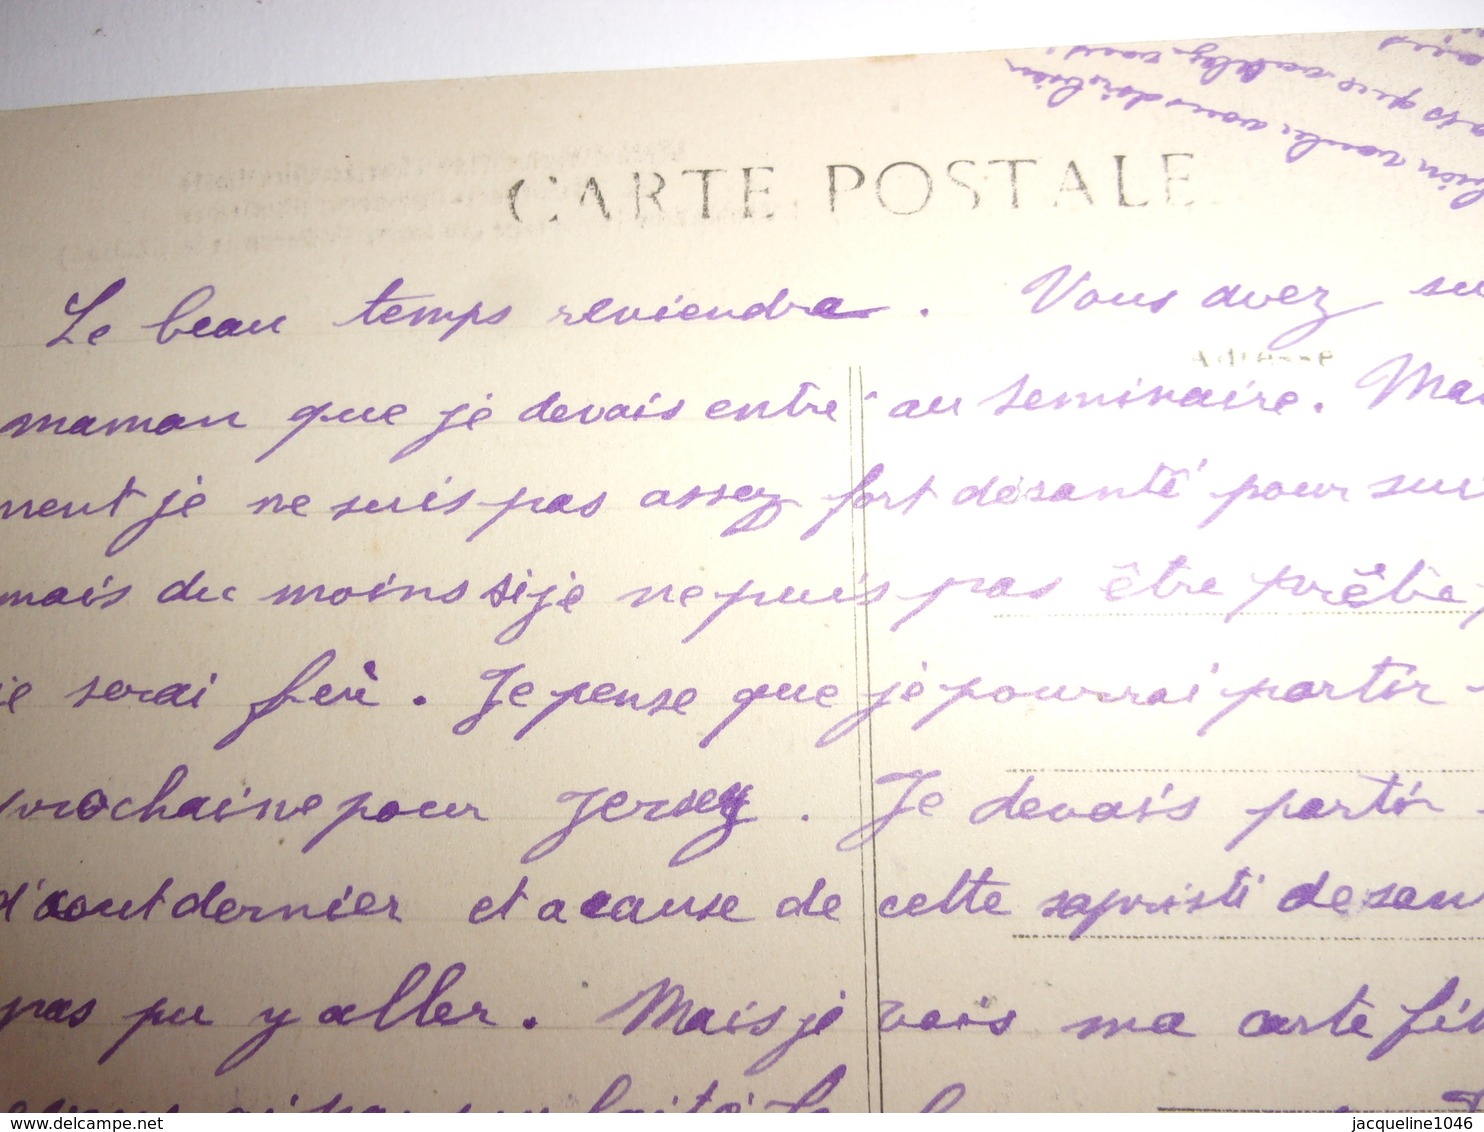 bien vouloir vous dois bien
que
CARTE POSTALE
Le beau temps reviendra. Vous avez su
maman que je devais entre au seminaire. Mal
ment je ne suis pas assez fort de santé pour sui
mais du moins si je ne puis pas être prêtre,
je serai frère. Je pense que je pourrai partir
prochaine pour Jersey. Je devais partir
d'aout dernier et a cause de cette sapristi de san
pas pu y aller. Mais je vois ma carte fi
Adresse
www.delcampe.net
jacqueline1046